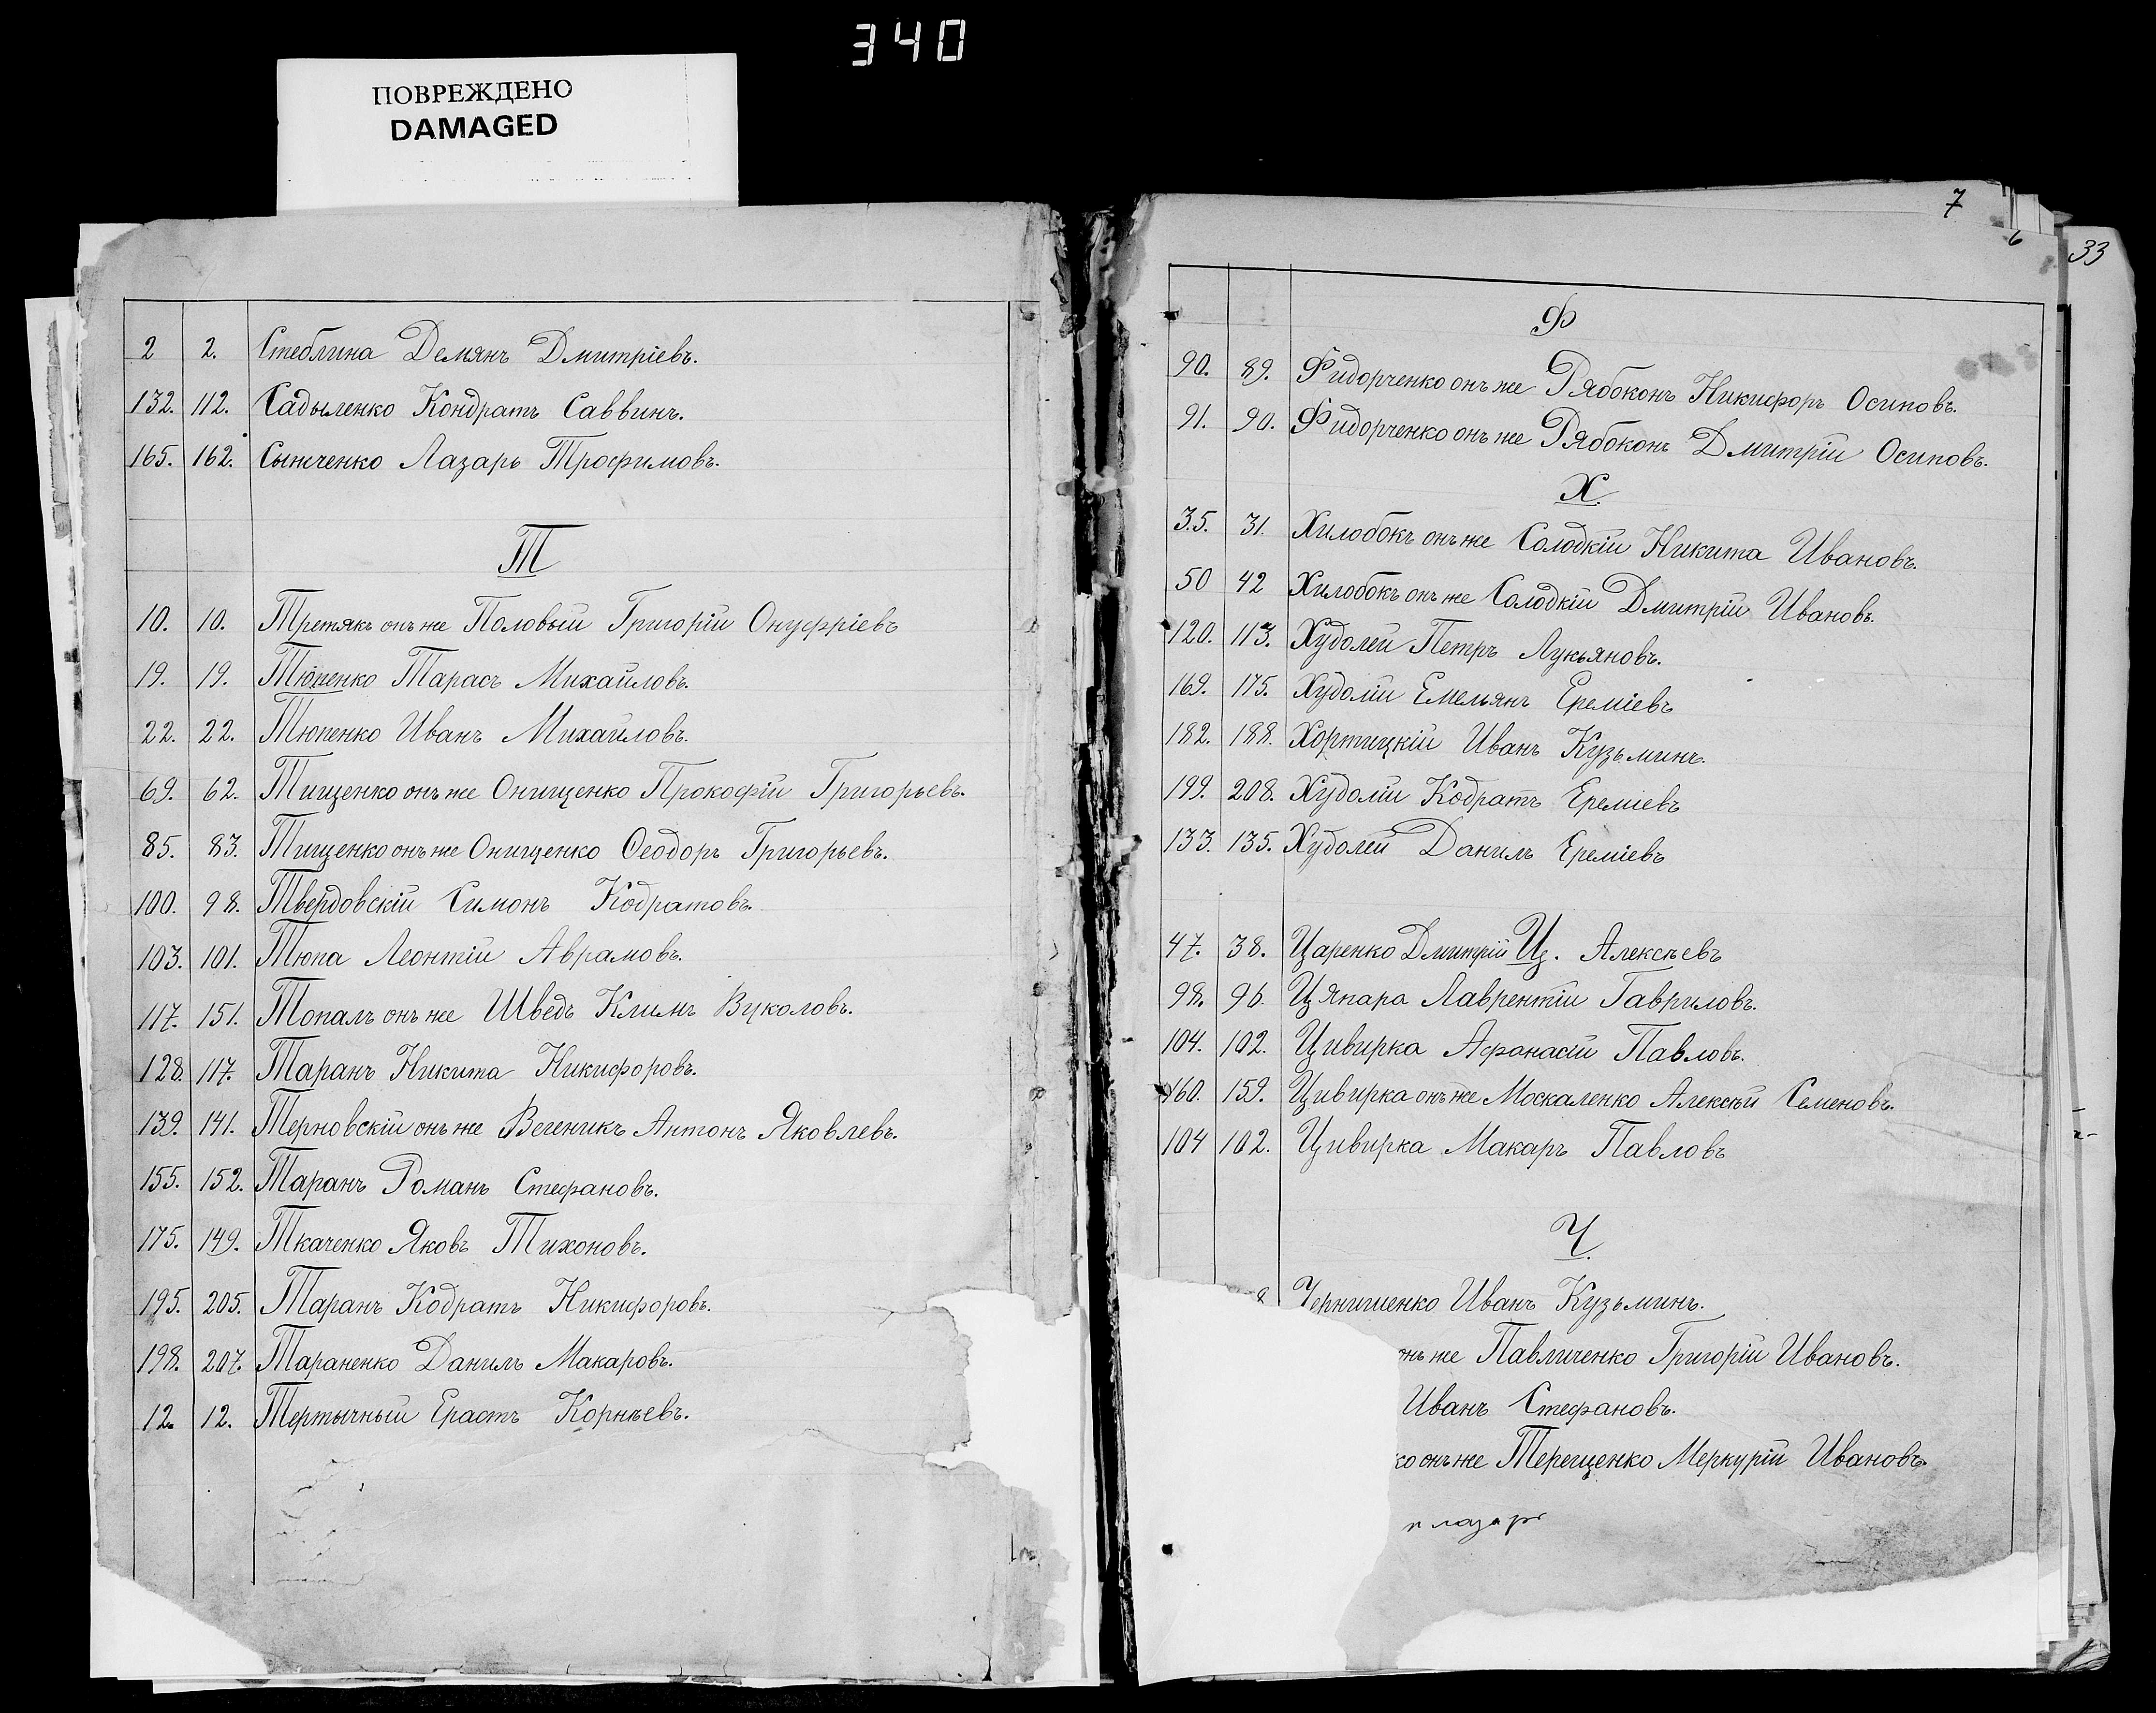 340
ПОВРЕЖДЕНО
DAMAGED
2 2. Стеблина Демянъ Дмитріевъ.
132. 112. Садыленко Кондратъ Саввинъ.
165. 162. Сынченко Лазарь Трофимовъ.
Т
10. 10. Третякъ онъ же Половый Григорій Онуфріевъ
19. 19. Тюпенко Тарасъ Михайловъ.
22. 22. Тюпенко Иванъ Михайловъ.
69. 62. Тищенко онъ же Онищенко Прокофій Григорьевъ.
85. 83. Тищенко онъ же Онищенко Ѳеодоръ Григорьевъ.
100. 98. Твердовскій Симонъ Кодратовъ.
103. 101. Тюпа Леонтій Аврамовъ.
117. 151. Топалъ онъ же Шведъ Климъ Вуколовъ.
128. 117. Таранъ Никита Никифоровъ.
139. 141. Терновскій онъ же Вегеникъ Антонъ Яковлевъ.
155. 152. Таранъ Романъ Стефановъ.
175. 149. Ткаченко Яковъ Тихоновъ.
195. 205. Таранъ Кодратъ Никифоровъ.
198. 207. Тараненко Данилъ Макаровъ.
12. 12. Тертычный Ерастъ Корнѣевъ.
7
6
33
Ф
90. 89. Фидорченко онъ же Рябоконъ Никифоръ Осиповъ.
91. 90. Фидорченко онъ же Рябоконъ Дмитрій Осиповъ.
Х.
35. 31. Хилобокъ онъ же Солодкій Никита Ивановъ.
50 42 Хилобокъ онъ же Солодкій Дмитрій Ивановъ.
120. 113. Худолей Петръ Лукьяновъ.
169. 175. Худолій Емельянъ Ереміевъ
182. 188. Хортицкій Иванъ Кузьминъ.
199. 208. Худолій Кодратъ Ереміевъ
133. 135. Худолей Данилъ Ереміевъ
Ц.
47. 38. Царенко Дмитрій Алексѣевъ
98. 96. Цяпара Лаврентій Гавриловъ.
104. 102. Цивирка Афанасій Павловъ.
160. 159. Цивирка онъ же Москаленко Алексѣй Семеновъ.
104 102. Цивирка Макаръ Павловъ
Ч.
8 Чернишенко Иванъ Кузьминъ.
онъ же Павличенко Григорій Ивановъ.
Иванъ Стефановъ.
ко онъ же Терещенко Меркурій Ивановъ.
лазарь